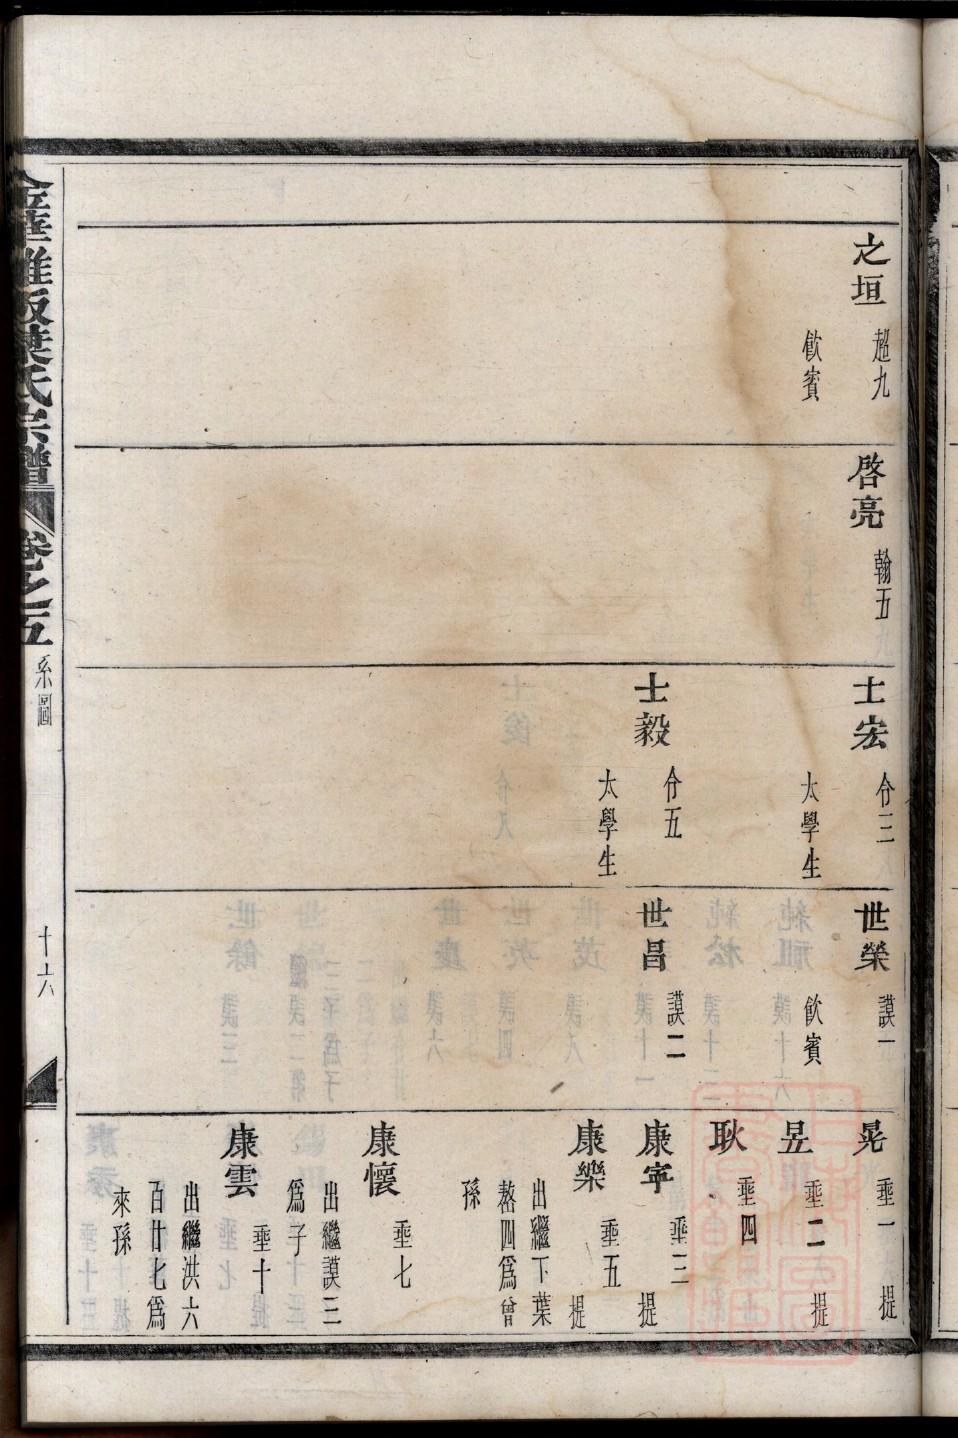 之垣 超九
飲賓
啓亮 翰五
士宏 分三
太學生
士毅 分五
太學生
世榮 謨一
飲賓
世昌 謨二
晃 垂一 提
昱 垂二 提
耿 垂四
康寧 垂三 提
康樂 垂五 提
出繼下葉
嶅四爲曾
孫
康懷 垂七
出繼謨三
爲子
康雲 垂十
出繼洪六
百廿七爲
來孫
葉氏宗譜 卷之五 系圖 十六